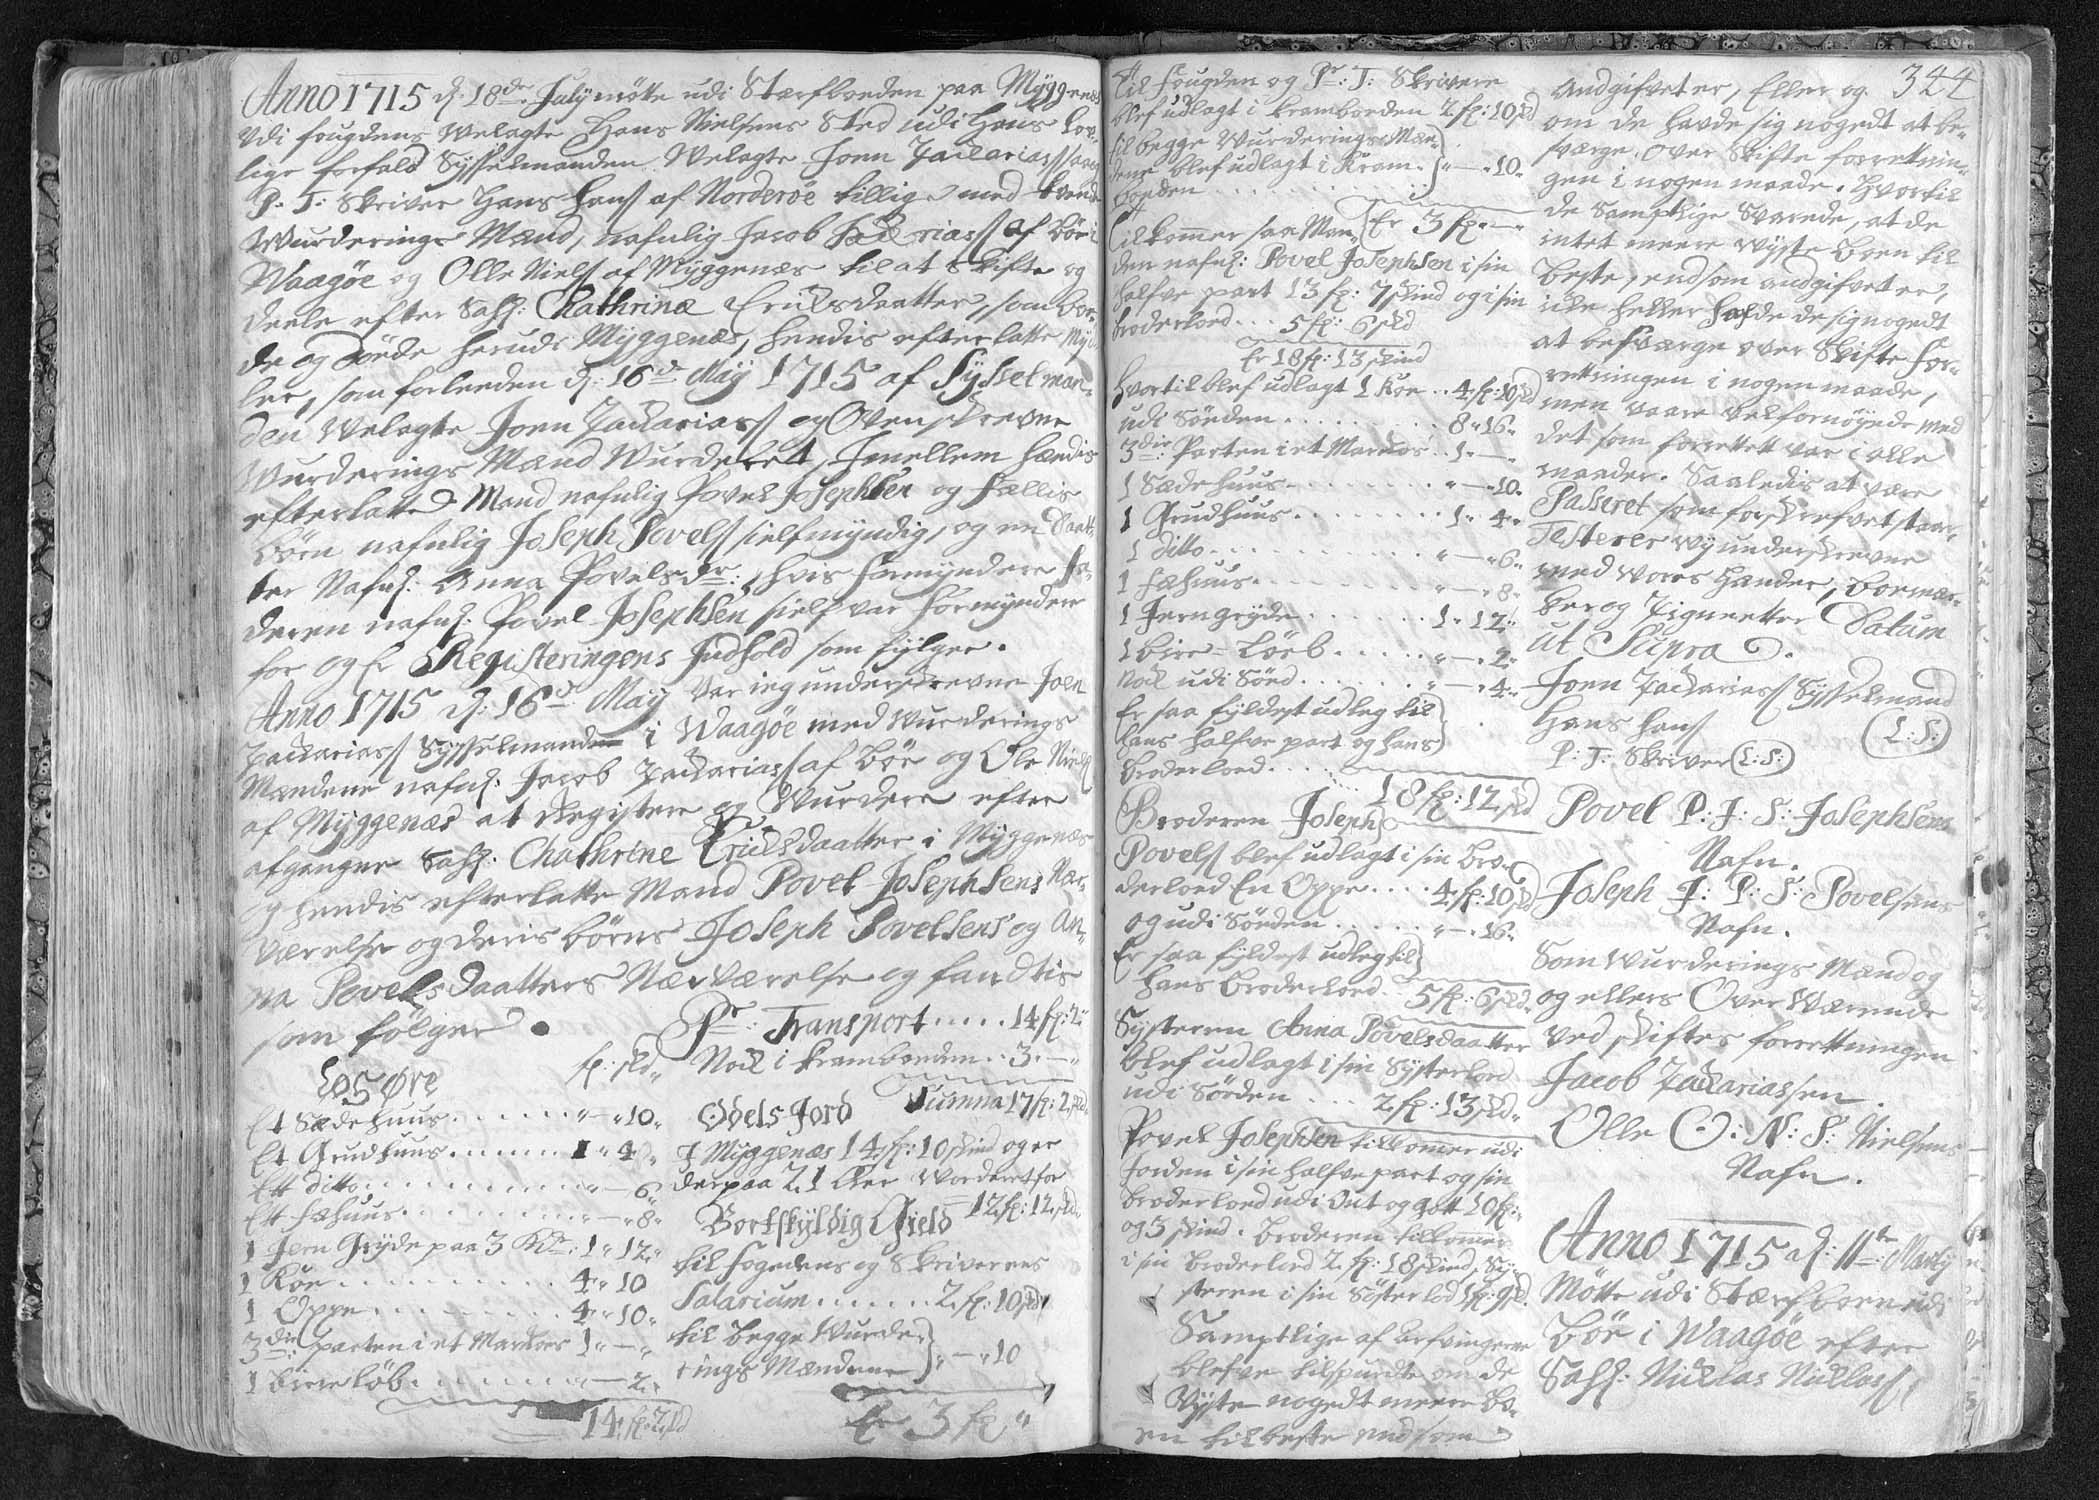 Anno 1715 d. 18de July møtte udi Stærfboeden paa Myggenæs
Udi fougdens Welagte Hans Nielsens Sted udi Hans Lov-
lige forfald Sysselmanden Welagte Joen Zachariass saa og
P: T: Skriver Hans Hans af Norderøe tillige med tvende
Wurderings Mænd, nafnlig Jacob Zachariass af Bøe i
Waagøe og Olle Niels af Myggenæs til at skifte og
deele efter Sahl: Chathrinæ Eriksdaatter, som boe-
de og døede herudi Myggenæs, hendis efterlatte Myd-
ler, som forleeden d: 16de May 1715 af Sysselman-
den Welagte Joen Zachariass og Ovenskrevne
Wurderings Mænd Wurderet, Imellem hændis
efterlatte Mand nafnlig Povel Josephsen og Fællis
Børn nafnlig Joseph Povels sielfmyndig, og en Daat-
ter Nafnl: Anna Povelsdr:, hvis formyndere Fa-
deren nafnl: Povel Josephsen sielf var Formyndere
for og Er Registeringens Indhold som fylger.
Anno 1715 d: 16de May Var ieg underskrevne Joen
Zachariass Sysselmanden i Waagøe med Wurderings
Mændene nafnl: Jacob Zachariass af Bøe og Ole Niels
af Myggenæs at Registere og Wurdere efter
afgangne Sahl: Chathrine Eriksdaatter i Myggenæs
og hendis efterlatte Mand Povel Josephsens Nær-
værelse og deris børns Joseph Povelsens og An-
na Povelsdaatters Nærværelse og fandtis
som følger.
Løs Øre fl: skd
Et Sædehuus . . . . . . " — " 10 "
Et Grudhuus . . . . . . 1 " 4 "
Ett ditto . . . . . . " — 6 "
Ett Fæhuus . . . . . . " — " 8 "
1 Jern Gryde paa 3 Kdr: 1 " 12 "
1 Koe . . . . . . 4 " 10
1 Oppe . . . . . . 4 " 10 "
3die parten i et Markoes 1 " — "
1 biere løb . . . . . . " — 2 "
14 fl: 2 skd
Pr: Transport . . . . . 14 fl: 2 "
Nock i kramboeden . . 3 " — "
Summa 17 fl: 2 skd
Odels Jord
I Myggenæs 14 fl: 10 skind og er
der paa 2 1 Koer Worderet for
12 fl: 12 skd
Bortskyldig Gield
til Fogedens og Skriverens
Salarium . . . . . . 2 fl: 10 skd
til begge Wurde-
rings Mændene " — " 10
Er 3 fl "
344
til Fougden og Pr: T: Skrivere
blef udlagt i kramboeden 2 fl: 10 skd
til begge Wurderings Mæn-
dene blef udlagt i Kram- " — " 10 "
boeden . . . . . .
Er 3 fl " — "
Tilkommer saa Man-
den nafnl: Povel Josephsen i sin
halfve part 13 fl: 7 skind og i sin
broderloed . . . 5 fl: 6 skd
Er 18 fl: 13 skind
hvortil blef udlagt 1 Koe . . 4 fl: 10 skd
udi Jorden . . . . . . 8 " 16 "
3die Parten i et Markoes . . 1 " — "
1 Sædehuus . . . . . . " — " 10 "
1 Grudhuus . . . . . . 1 " 4 "
1 ditto . . . . . . " — " 6 "
1 Fæhuus . . . . . . " — " 8 "
1 Jerngryde . . . . . . 1 " 12 "
1 biere løeb . . . . . . " — 2 "
Nock udi Jord . . . . . . " — " 4 "
Er saa fyldest udleg til
Hans halfve part og hans
broderloed . . . .
18 fl: 12 skd
Broderen Joseph
Povels blef udlagt i sin bro-
derloed En Oppe . . . . 4 fl: 10 skd
og udi Jorden . . . . . " — " 16 "
Er saa fyldest udleg til
hans broderloed . . 5 fl: 6 skd
Systeren Anna Povelsdaatter
blef udlagt i sin Systerlod
udi Jorden . . . 2 fl: 13 skd
Povel Josephsen tilkommer udi
Jorden i sin halfve part og sin
broderloed udi Out og gott 10 fl:
og 3 skind. broderen tilkommer
i sin broderlod 2 fl: 18 skind, Sy-
steren i sin Søsterlod 1 fl: 9 skd
Samptlige af Arfvingerne
blefve tilspurdte om de
Vyste nogedt meere bo-
en til beste end som
andgifvet er, Eller og
om de hafde sig nogedt at be-
sværge, over Skifte forrettnin-
gen i nogen maade. Hvortil
de Samptlige Svarede, at de
intet meere vyste boen til
beste, end som andgifvet er,
icke heller hafde de sig nogedt
at besværge over Skifte for-
rettningen i nogen maade,
men vaare velfornøyede med
det som forrettett var i alle
maader. Saaledis at være
Passeret som forskrefvet staar
Testerer Wy underskrevne
med vores hænder, boemær-
ker og Zignetter Datum
ut Supra.
Joen Zachariass Sysselmand
(L:S:)
Hans Hans
P: T: Skriver (L:S:)
Povel P: I: S: Josephsens
Nafn.
Joseph I: P: S: Povelsens
Nafn.
Som Wurderings Mænd og
og ellers Over Wærende
ved skiftes forrettningen
Jacob Zachariassen.
Olle O: N: S: Nielsens
Nafn.
Anno 1715 d: 11te Martij
Møtte udi Stærfboen udi
Bøe i Waagøe efter
Sahl: Nicklas Nicklass